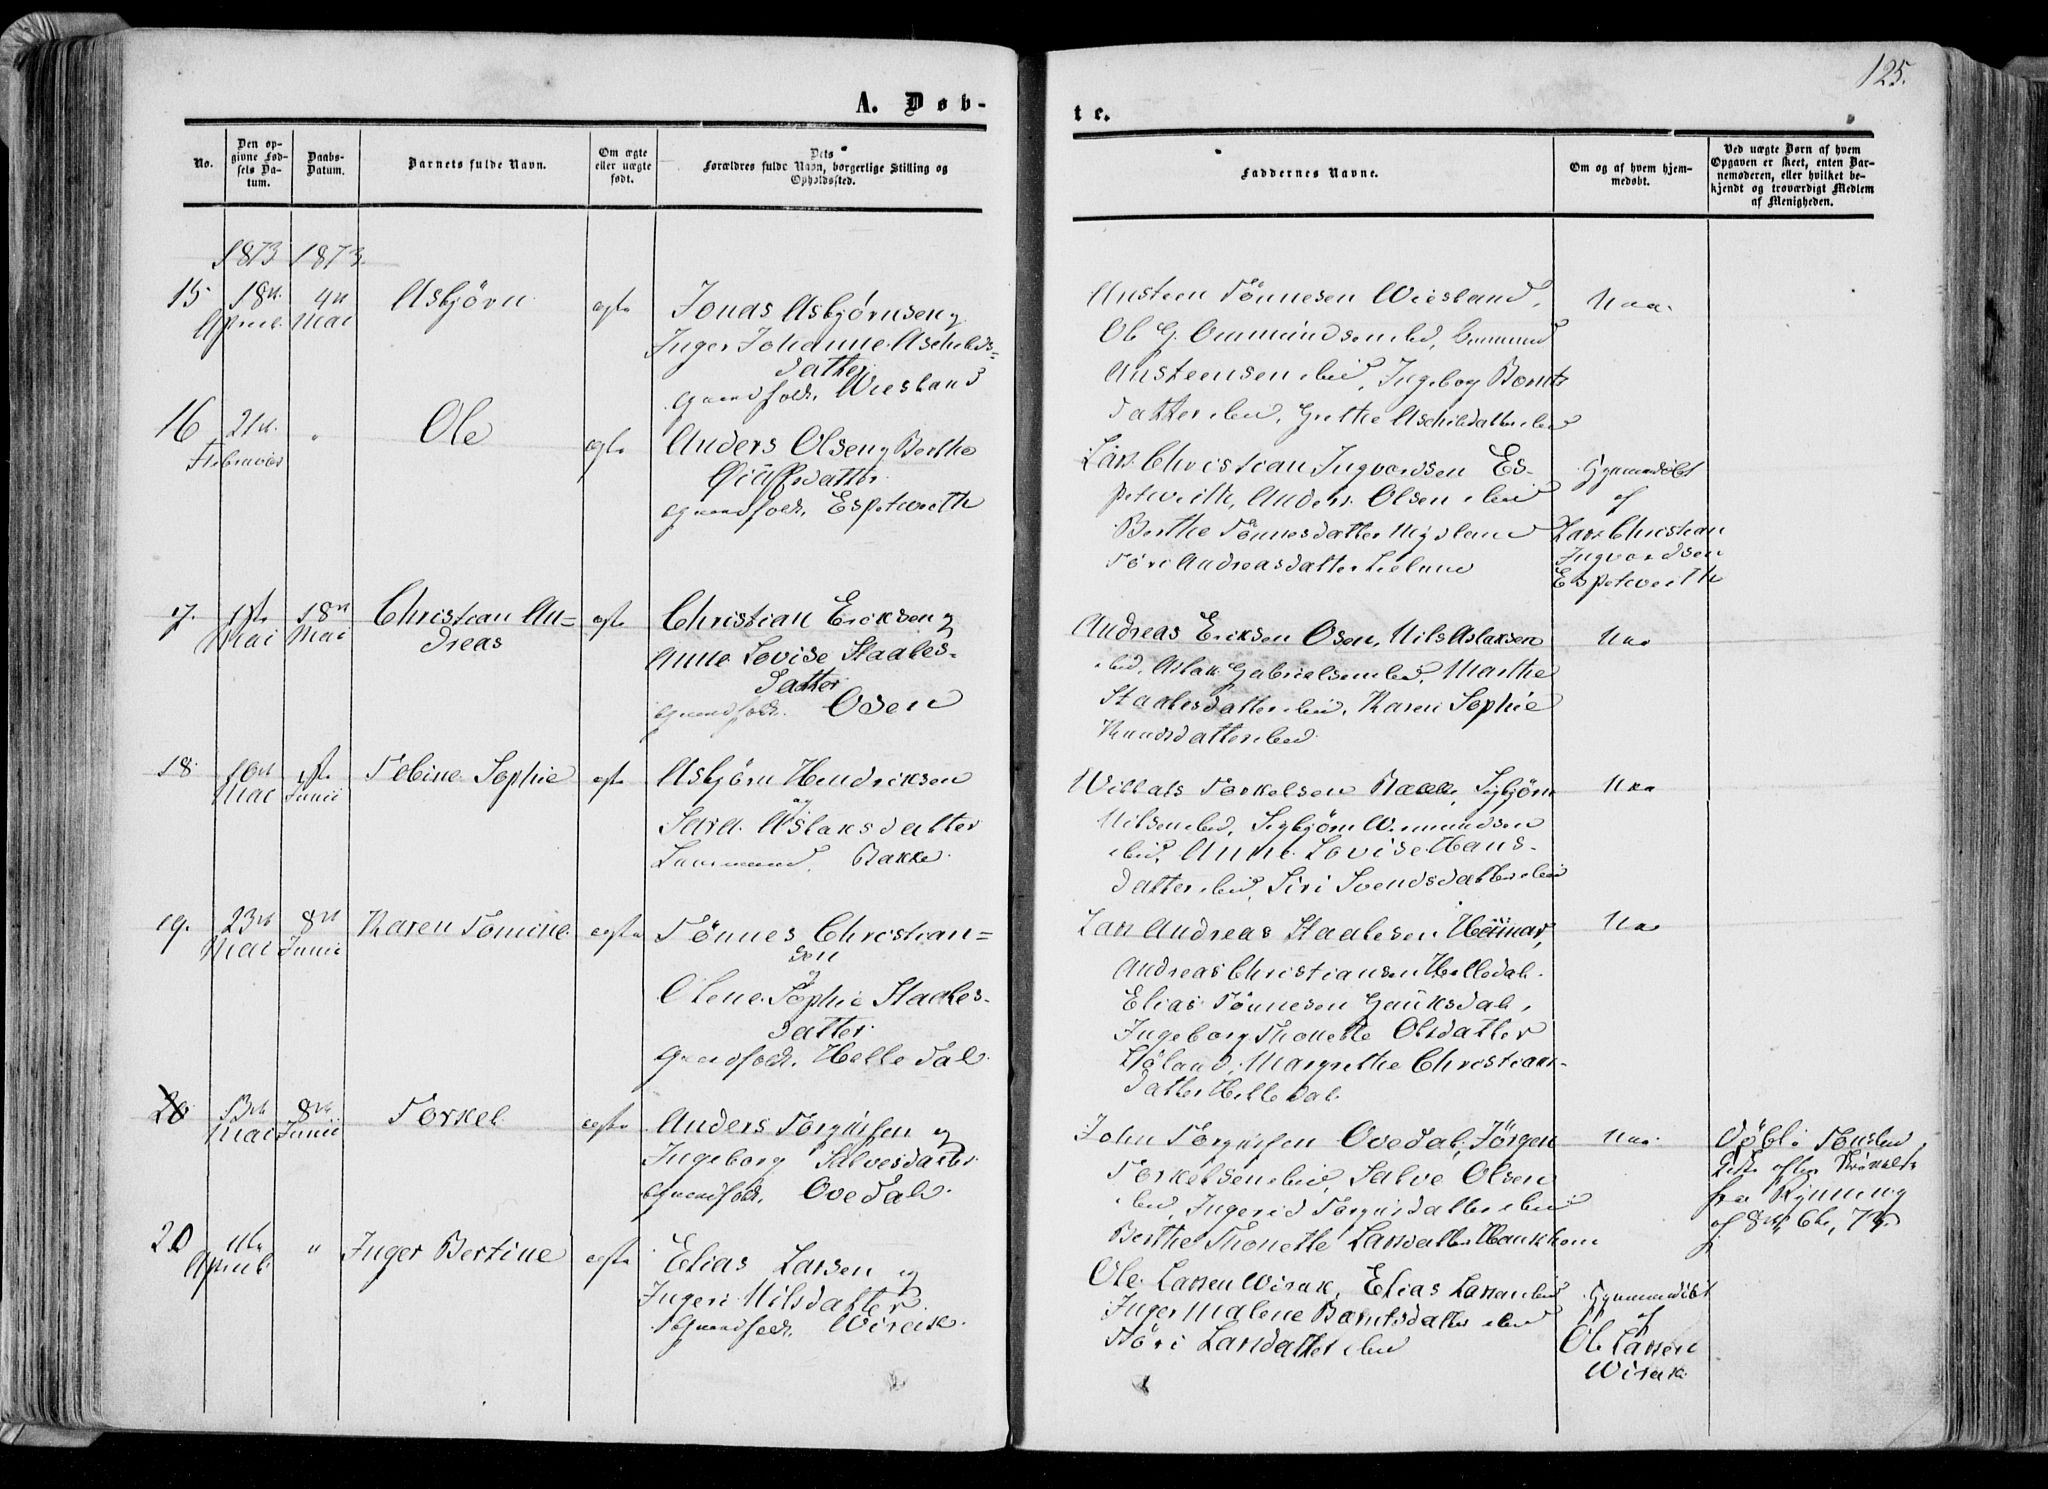 125.
A. Døb-
te.
No.
Den op-
givne Fød-
sels Da-
tum.
Daabs-
Datum.
Barnets fulde Navn.
Om ægte
eller uægte
født.
Dets
Forældres fulde Navn, borgerlige Stilling og
Opholdssted.
Faddernes Navne.
Om og af hvem hjem-
medøbt.
Ved uægte Børn af hvem
Opgaven er skeet, enten Bar-
nemoderen, eller hvilket be-
kjendt og troværdigt Medlem
af Menigheden.
1873 1873.
15
18
April
4
Mai
Asbjørn
ægte
Jonas Asbjørnsen og
Inger Johanne Aschilds=
datter
Gaardfolk. Wiesland
Ansteen Tönnesen Wiesland,
Ole G. Ommundsen ibid, Ommund
Ansteensen ibid, Ingeborg Berntz
datter ibid, Grethe Aschildatter ibid
16
21
Februar
"
Ole
ægte
Anders Olsen og Berthe
datter
Gaardfolk, Espetveith
Lars Christian Ingvardsen Es-
petveith, Anders Olsen ibid
Berthe Tönnesdatter
Töri Andreasdatter
Hjemmedöbt
af
Lars Christian
Ingvardsen
Espetveith
17.
1ste
Mai
18
Mai
Christian An=
dreas
ægte
Christian Eriksen og
Anne Lovise Staales-
datter
Gaardfolk. Osen
Andreas Eriksen Osen, Nils Aslaksen
ibid, Aslak Gabrielsen ibid, Marthe
Staalesdatter ibid, Karen Sophie
Knudsdatter ibid.
18.
10
Mai
1ste
Junii
Tobine Sophie
ægte
Asbjørn Hendriksen
og
Sara Aslaksdatter
Bakke.
Torkelsen Bakke, Sigbjörn
Nilsen ibid, Sigbjörn
ibid, Anne Lovise Hans-
datter ibid, Siri Svendsdatter ibid
19.
23
Mai
8
Junii
Karen Tomine
ægte
Tönnes Christian=
sen
og
Olene Sophie Staales-
datter
Gaardfolk. Helledal.
Lars Andreas Staalesen
Andreas Christiansen Helledal.
Elias Tönnesen Gauksdal,
Ingeborg Thonette Olsdatter
Margrethe Christians-
datter Helledal.
20
13
Mai
8
Junii
Torkel
ægte
Anders Torgiusen og
Ingeborg Salvesdatter
Gaardfolk. Ovedal.
John Torgiusen Ovedal, Jörgen
Torkelsen ibid, Salve Olsen
ibid, Ingerid Torgiusdatter ibid
Berthe Thonette Larsdatter
Döbt i Tonstad
fra
af
20
11te
April
"
Inger Bertine
ægte
Elias Larsen og
Ingeri Nilsdatter
Gaardfolk. Wirak.
Ole Larsen Wirak, Elias Larsen ibid
Inger Malene Berntsdatter ibid
Töri Larsdatter ibid
Hjemmedöbt
af
Ole Larsen
Wirak